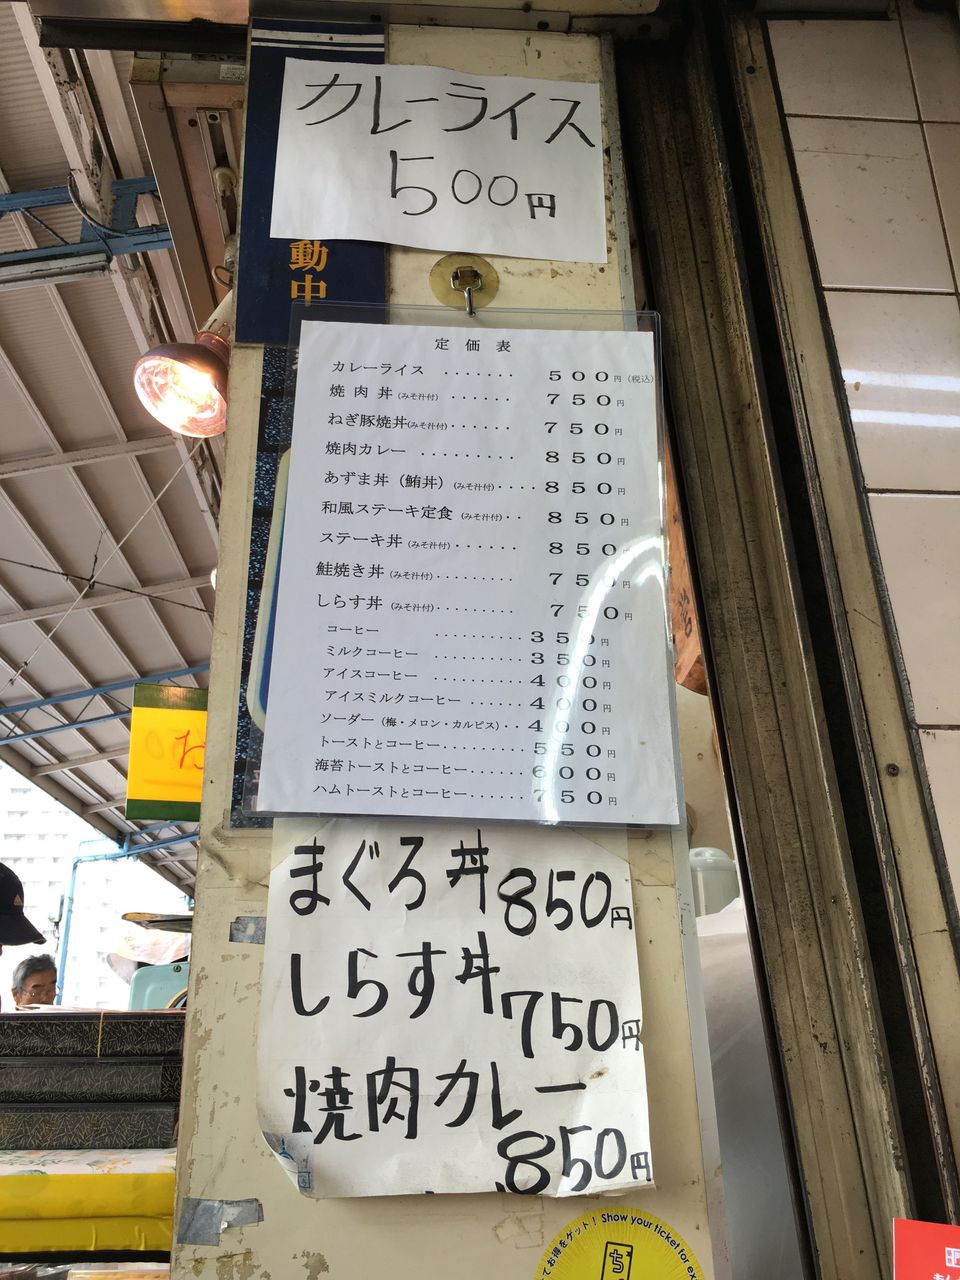 カレーライス
500円
動中
定価表
カレーライス ・・・・・・・ 500円（税込）
焼肉丼（みそ汁付）・・・・・・ 750円
ねぎ豚焼丼（みそ汁付）・・・・・・ 750円
焼肉カレー ・・・・・・・・・ 850円
あずま丼（鮪丼）（みそ汁付）・・・・850円
和風ステーキ定食（みそ汁付）・・ 850円
ステーキ丼（みそ汁付）・・・・・・ 850円
鮭焼き丼（みそ汁付）・・・・・・・・・ 750円
しらす丼（みそ汁付）・・・・・・・・・ 750円
コーヒー ・・・・・・・・・・350円
ミルクコーヒー ・・・・・・・・・・350円
アイスコーヒー ・・・・・・・・・・400円
アイスミルクコーヒー ・・・・・・400円
ソーダー（梅・メロン・カルピス）・・400円
トーストとコーヒー・・・・・・・・・550円
海苔トーストとコーヒー・・・・・・600円
ハムトーストとコーヒー・・・・・・750円
まぐろ丼850円
しらす丼750円
焼肉カレー
850円
てお得をゲット! Show your ticket for ex
ち